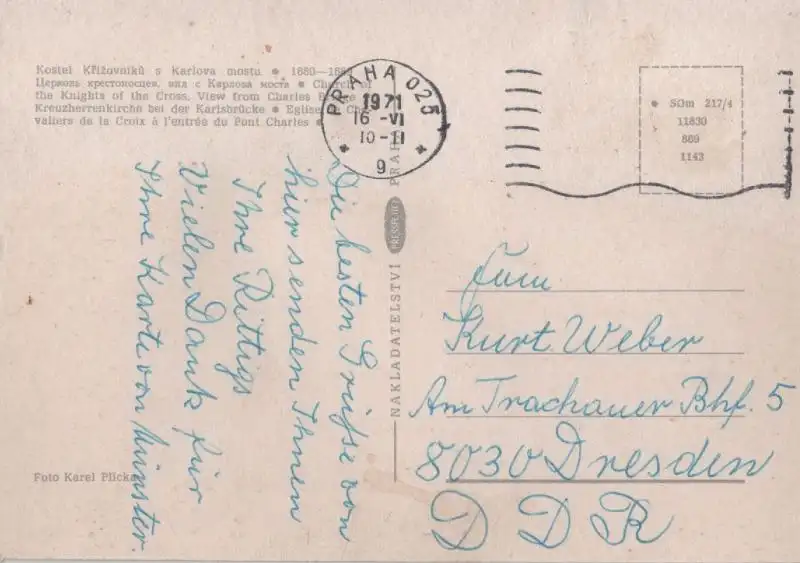 Kostel Křižovníků s Karlova mostu ● 1680—168
Церковь крестоносцев, вид с Карлова моста ● Church of
the Knights of the Cross. View from Charles B
Kreuzherrenkirche bei der Karlsbrücke ● Eglise Che
valiers de la Croix à l'entrée du Pont Charles ●
PRAHA 025
1971
16 -VI
10-11
9
● SOm 217/4
11830
869
1143
Die besten Grüße von
hier senden Ihnen
Ihre Rittigs
Vielen Dank für
Ihre Karte von Münster.
NAKLADATELSTVÍ PRESSFOTO PRAH
Kurt Weber
Am Trachauer Bhf. 5
8030 Dresden
DDR
Foto Karel Plicka